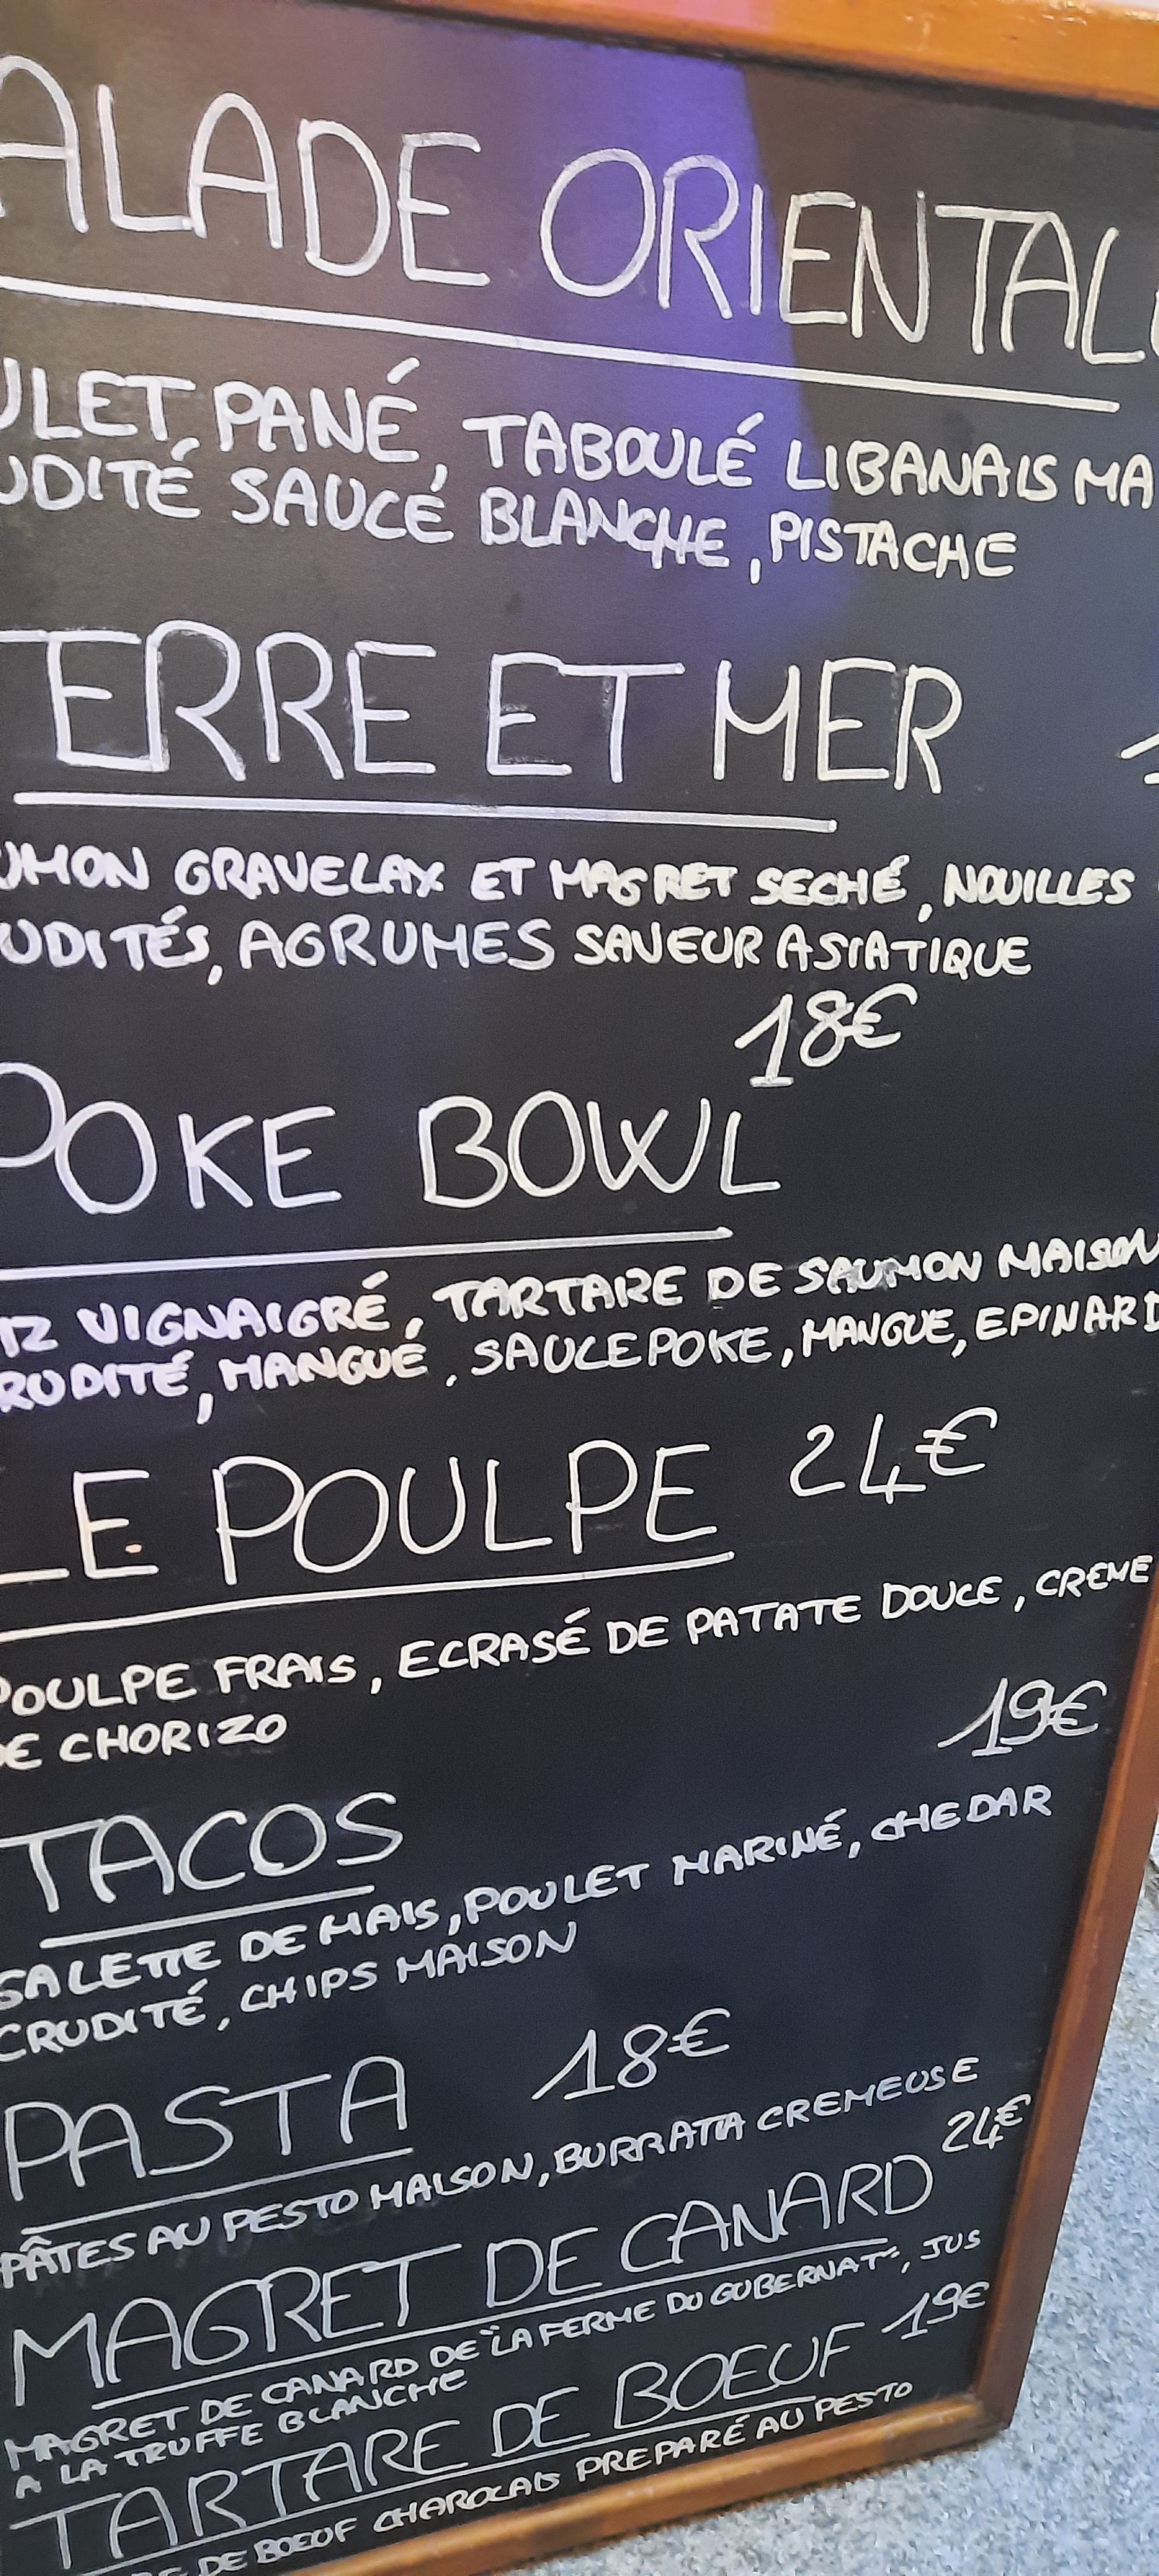 ALADE ORIENTAL
ULET PANÉ, TABOULÉ LIBANAIS MA
UDITÉ SAUCE BLANCHE, PISTACHE
TERRE ET MER 1
UMON GRAVELAX ET MAGRET SECHÉ, NOUILLES
UDITÉS, AGRUMES SAVEUR ASIATIQUE
18€
POKE BOWL
IZ VIGNAIGRÉ, TARTARE DE SAUMON MAISON
RUDITÉ, MANGUE, SAUCE POKE, MANGUE, EPINARD
LE POULPE 24€
POULPE FRAIS, ECRASÉ DE PATATE DOUCE, CREME
DE CHORIZO
19€
TACOS
GALETTE DE MAIS, POULET MARINÉ, CHEDAR
CRUDITÉ, CHIPS MAISON
PASTA 18€
PÂTES AU PESTO MAISON, BURRATA CREMEUSE
MAGRET DE CANARD 24€
MAGRET DE CANARD DE "LA FERME DU GUBERNAT", JUS
A LA TRUFFE BLANCHE
TARTARE DE BOEUF 19€
RE DE BOEUF CHAROLAIS PREPARÉ AU PESTO